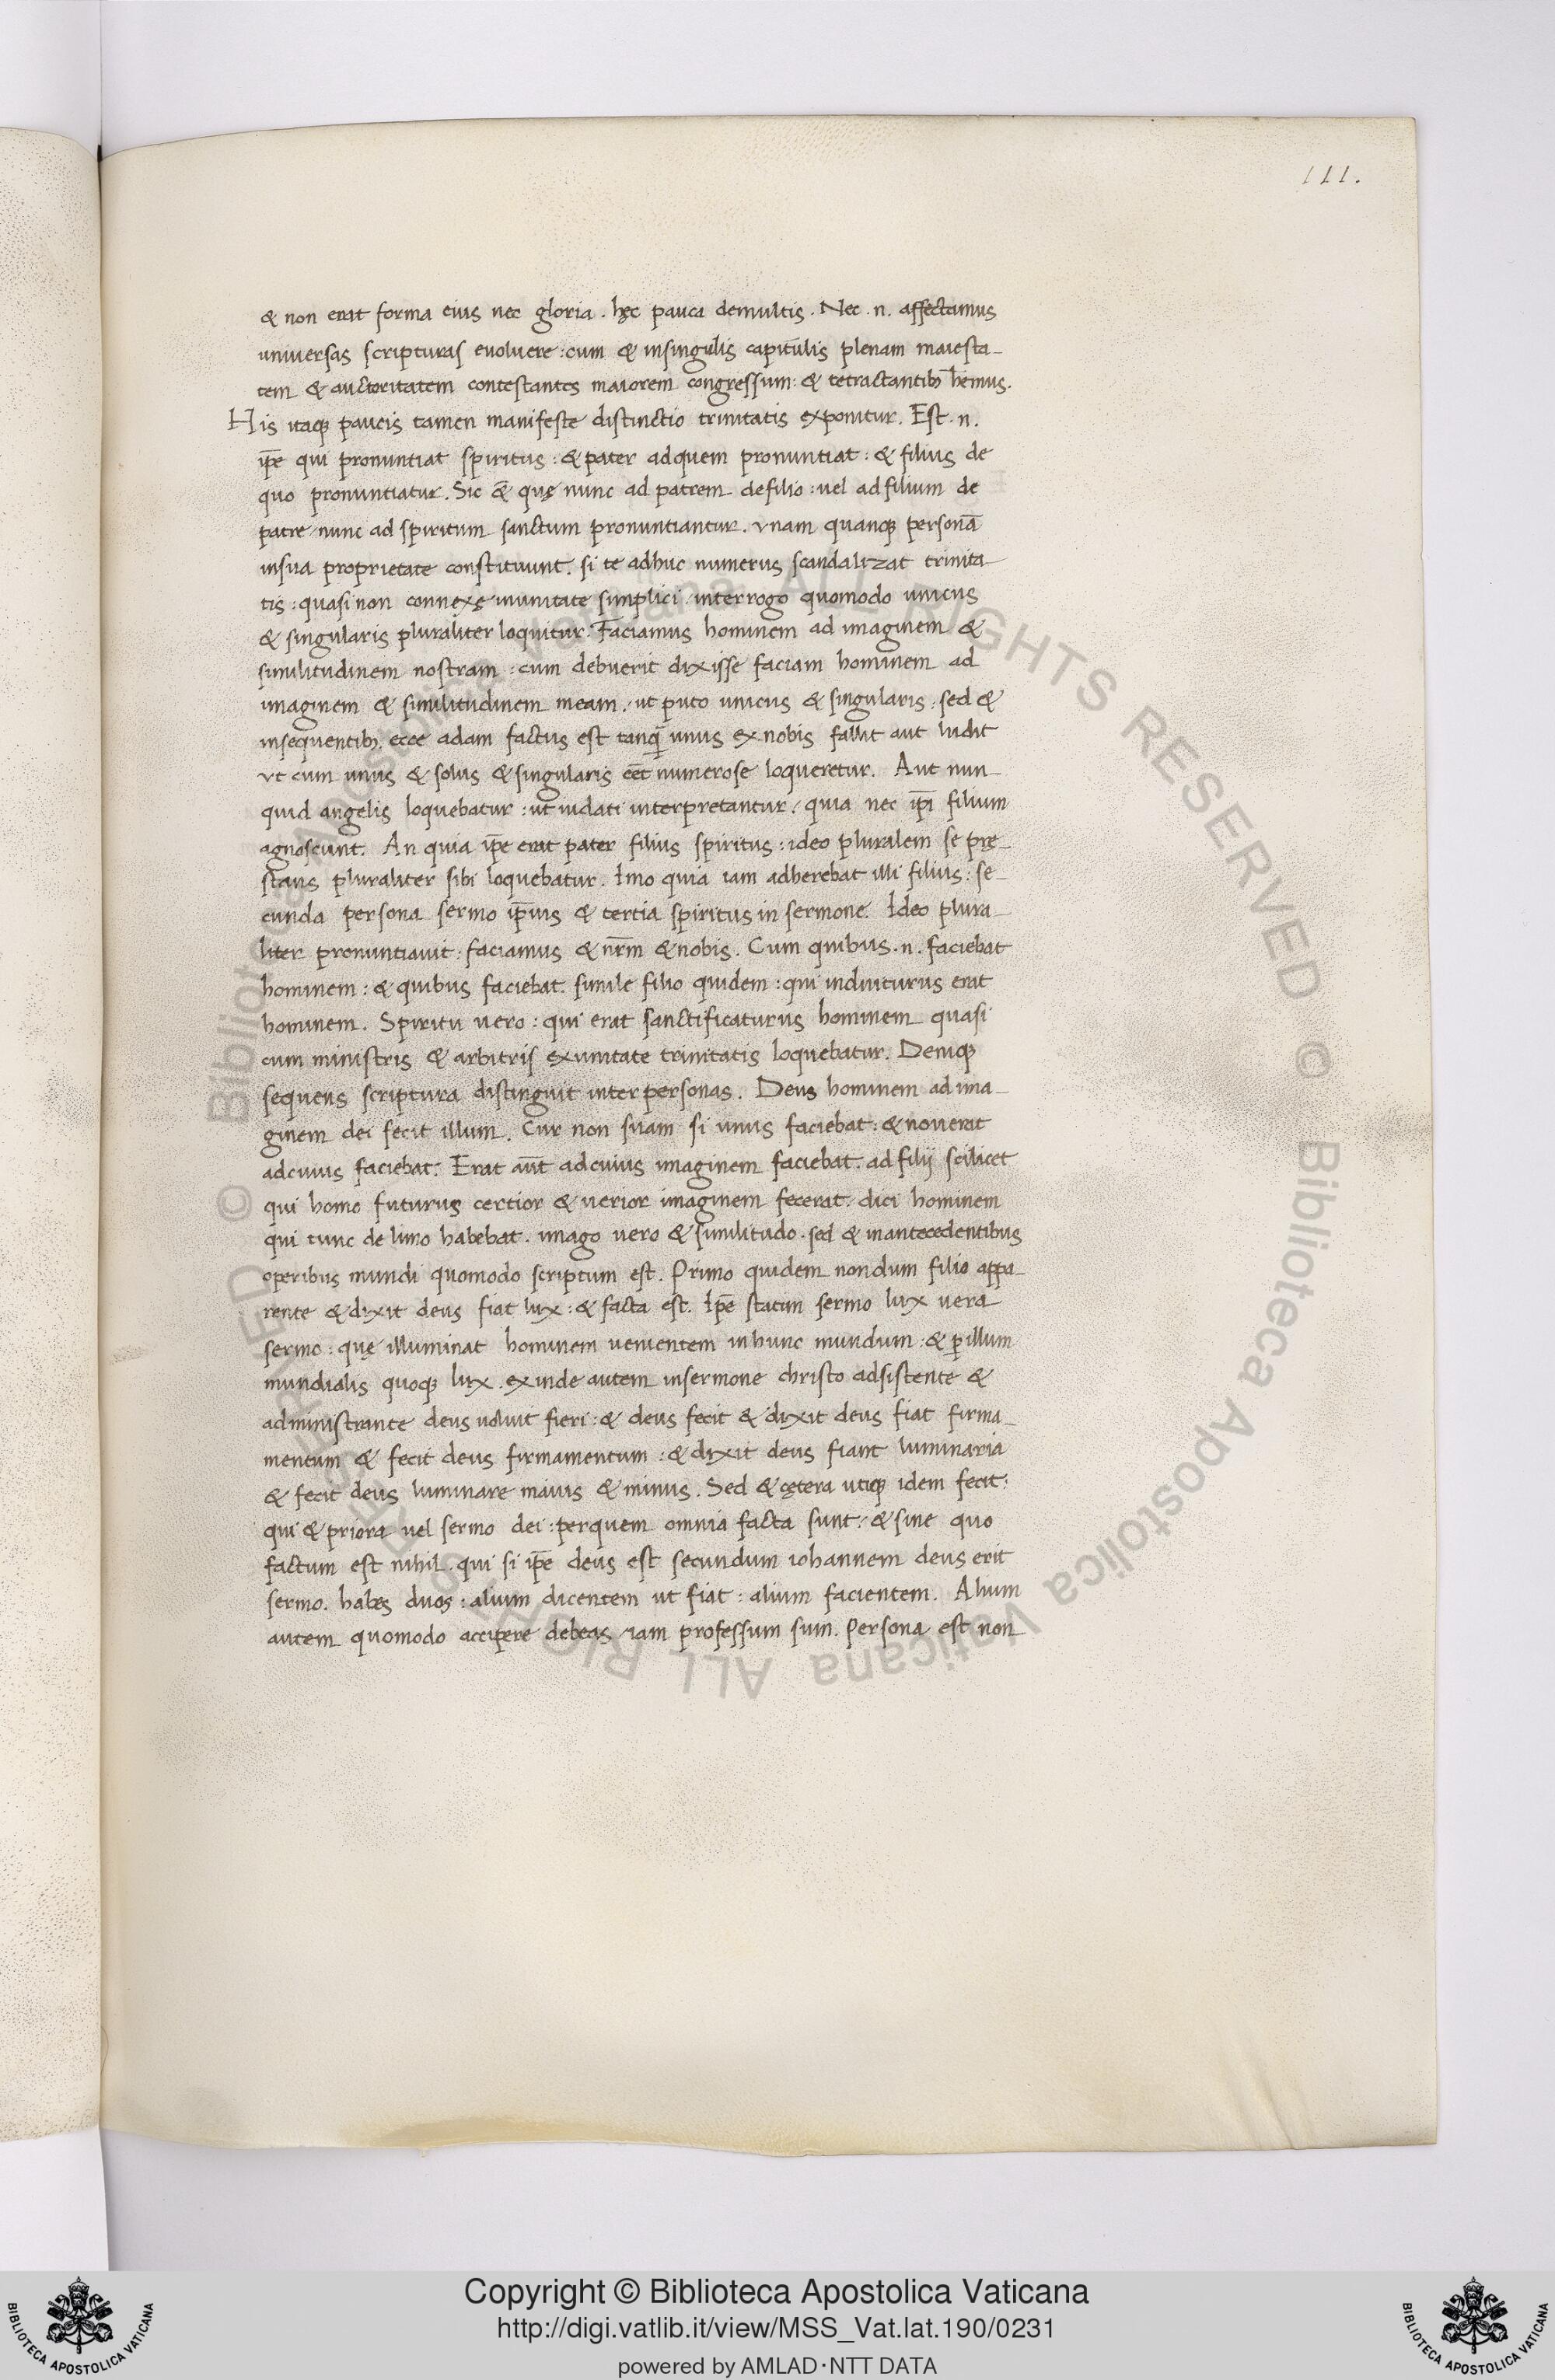 111.
& non erat forma eius nec gloria. hęc pauca demultis. Nec .n. affectamus
universas scripturas evolvere: cum & insingulis capitulis plenam maiesta-
tem & auctoritatem contestantes maiorem congressum: & tetractantibꝫ hēmus.
His itaqꝫ paucis tamen manifeste distinctio trinitatis exponitur. Est .n.
ip̄e qui pronuntiat spiritus: & pater adquem pronuntiat: & filius de
quo pronuntiatur. Sic &̄ quę nunc ad patrem defilio: vel adfilium de
patre: nunc ad spiritum sanctum pronuntiantur. vnam quanqꝫ personā
insua proprietate constituunt. si te adhuc numerus scandalizat trinita-
tis: quasi non connexę inunitate simplici: interrogo quomodo unicus
& singularis pluraliter loquitur: Faciamus hominem ad imaginem &
similitudinem nostram: cum debuerit dixisse faciam hominem ad
imaginem & similitudinem meam. ut puto unicus & singularis: sed &
insequentibꝫ ecce adam factus est tanq̄ unus ex nobis fallit aut ludit
vt cum unus & solus & singularis eēt numerose loqueretur. Aut nun-
quid angelis loquebatur: ut iudaei interpretantur: quia nec ip̄i filium
agnoscunt. An quia ip̄e erat pater filius spiritus: ideo pluralem se prę-
stans pluraliter sibi loquebatur. Imo quia iam adherebat illi filius: se-
cunda persona sermo ip̄ius & tertia spiritus in sermone. Ideo plura-
liter pronuntiavit: faciamus & nr̄m & nobis. Cum quibus .n. faciebat
hominem: & quibus faciebat. simile filio quidem: qui induiturus erat
hominem. Spiritu vero: qui erat sanctificaturus hominem quasi
cum ministris & arbitris exunitate trinitatis loquebatur. Deniqꝫ
sequens scriptura distinguit inter personas. Deus hominem ad ima-
ginem dei fecit illum. Cur non suam si unus faciebat: & noverat
adcuius faciebat. Erat aūt adcuius imaginem faciebat. ad filij scilicet
qui homo futurus certior & verior imaginem fecerat: dici hominem
qui tunc de limo habebat. imago vero & similitudo. sed & inantecedentibus
operibus mundi quomodo scriptum est. Primo quidem nondum filio appa-
rente & dixit deus fiat lux: & facta est. Ip̄e statim sermo lux vera
sermo: quę illuminat hominem venientem inhunc mundum: & p̱ illum
mundialis quoqꝫ lux. exinde autem insermone christo adsistente &
administrante deus voluit fieri: & deus fecit & dixit deus fiat firma-
mentum & fecit deus firmamentum: & dixit deus fiant luminaria
& fecit deus luminare maius & minus. Sed & cętera utiqꝫ idem fecit:
qui & priora vel sermo dei: perquem omnia facta sunt: & sine quo
factum est nihil. qui si ip̄e deus est secundum iohannem deus erit
sermo. habes duos: alium dicentem ut fiat: alium facientem. Alium
autem quomodo accipere debeas iam professum sum. Persona est non
© Biblioteca Apostolica Vaticana ALL RIGHTS RESERVED © Biblioteca Apostolica Vaticana ALL RIGHTS RESERVED
Copyright © Biblioteca Apostolica Vaticana
http://digi.vatlib.it/view/MSS_Vat.lat.190/0231
powered by AMLAD·NTT DATA
BIBLIOTECA APOSTOLICA VATICANA
BIBLIOTECA APOSTOLICA VATICANA